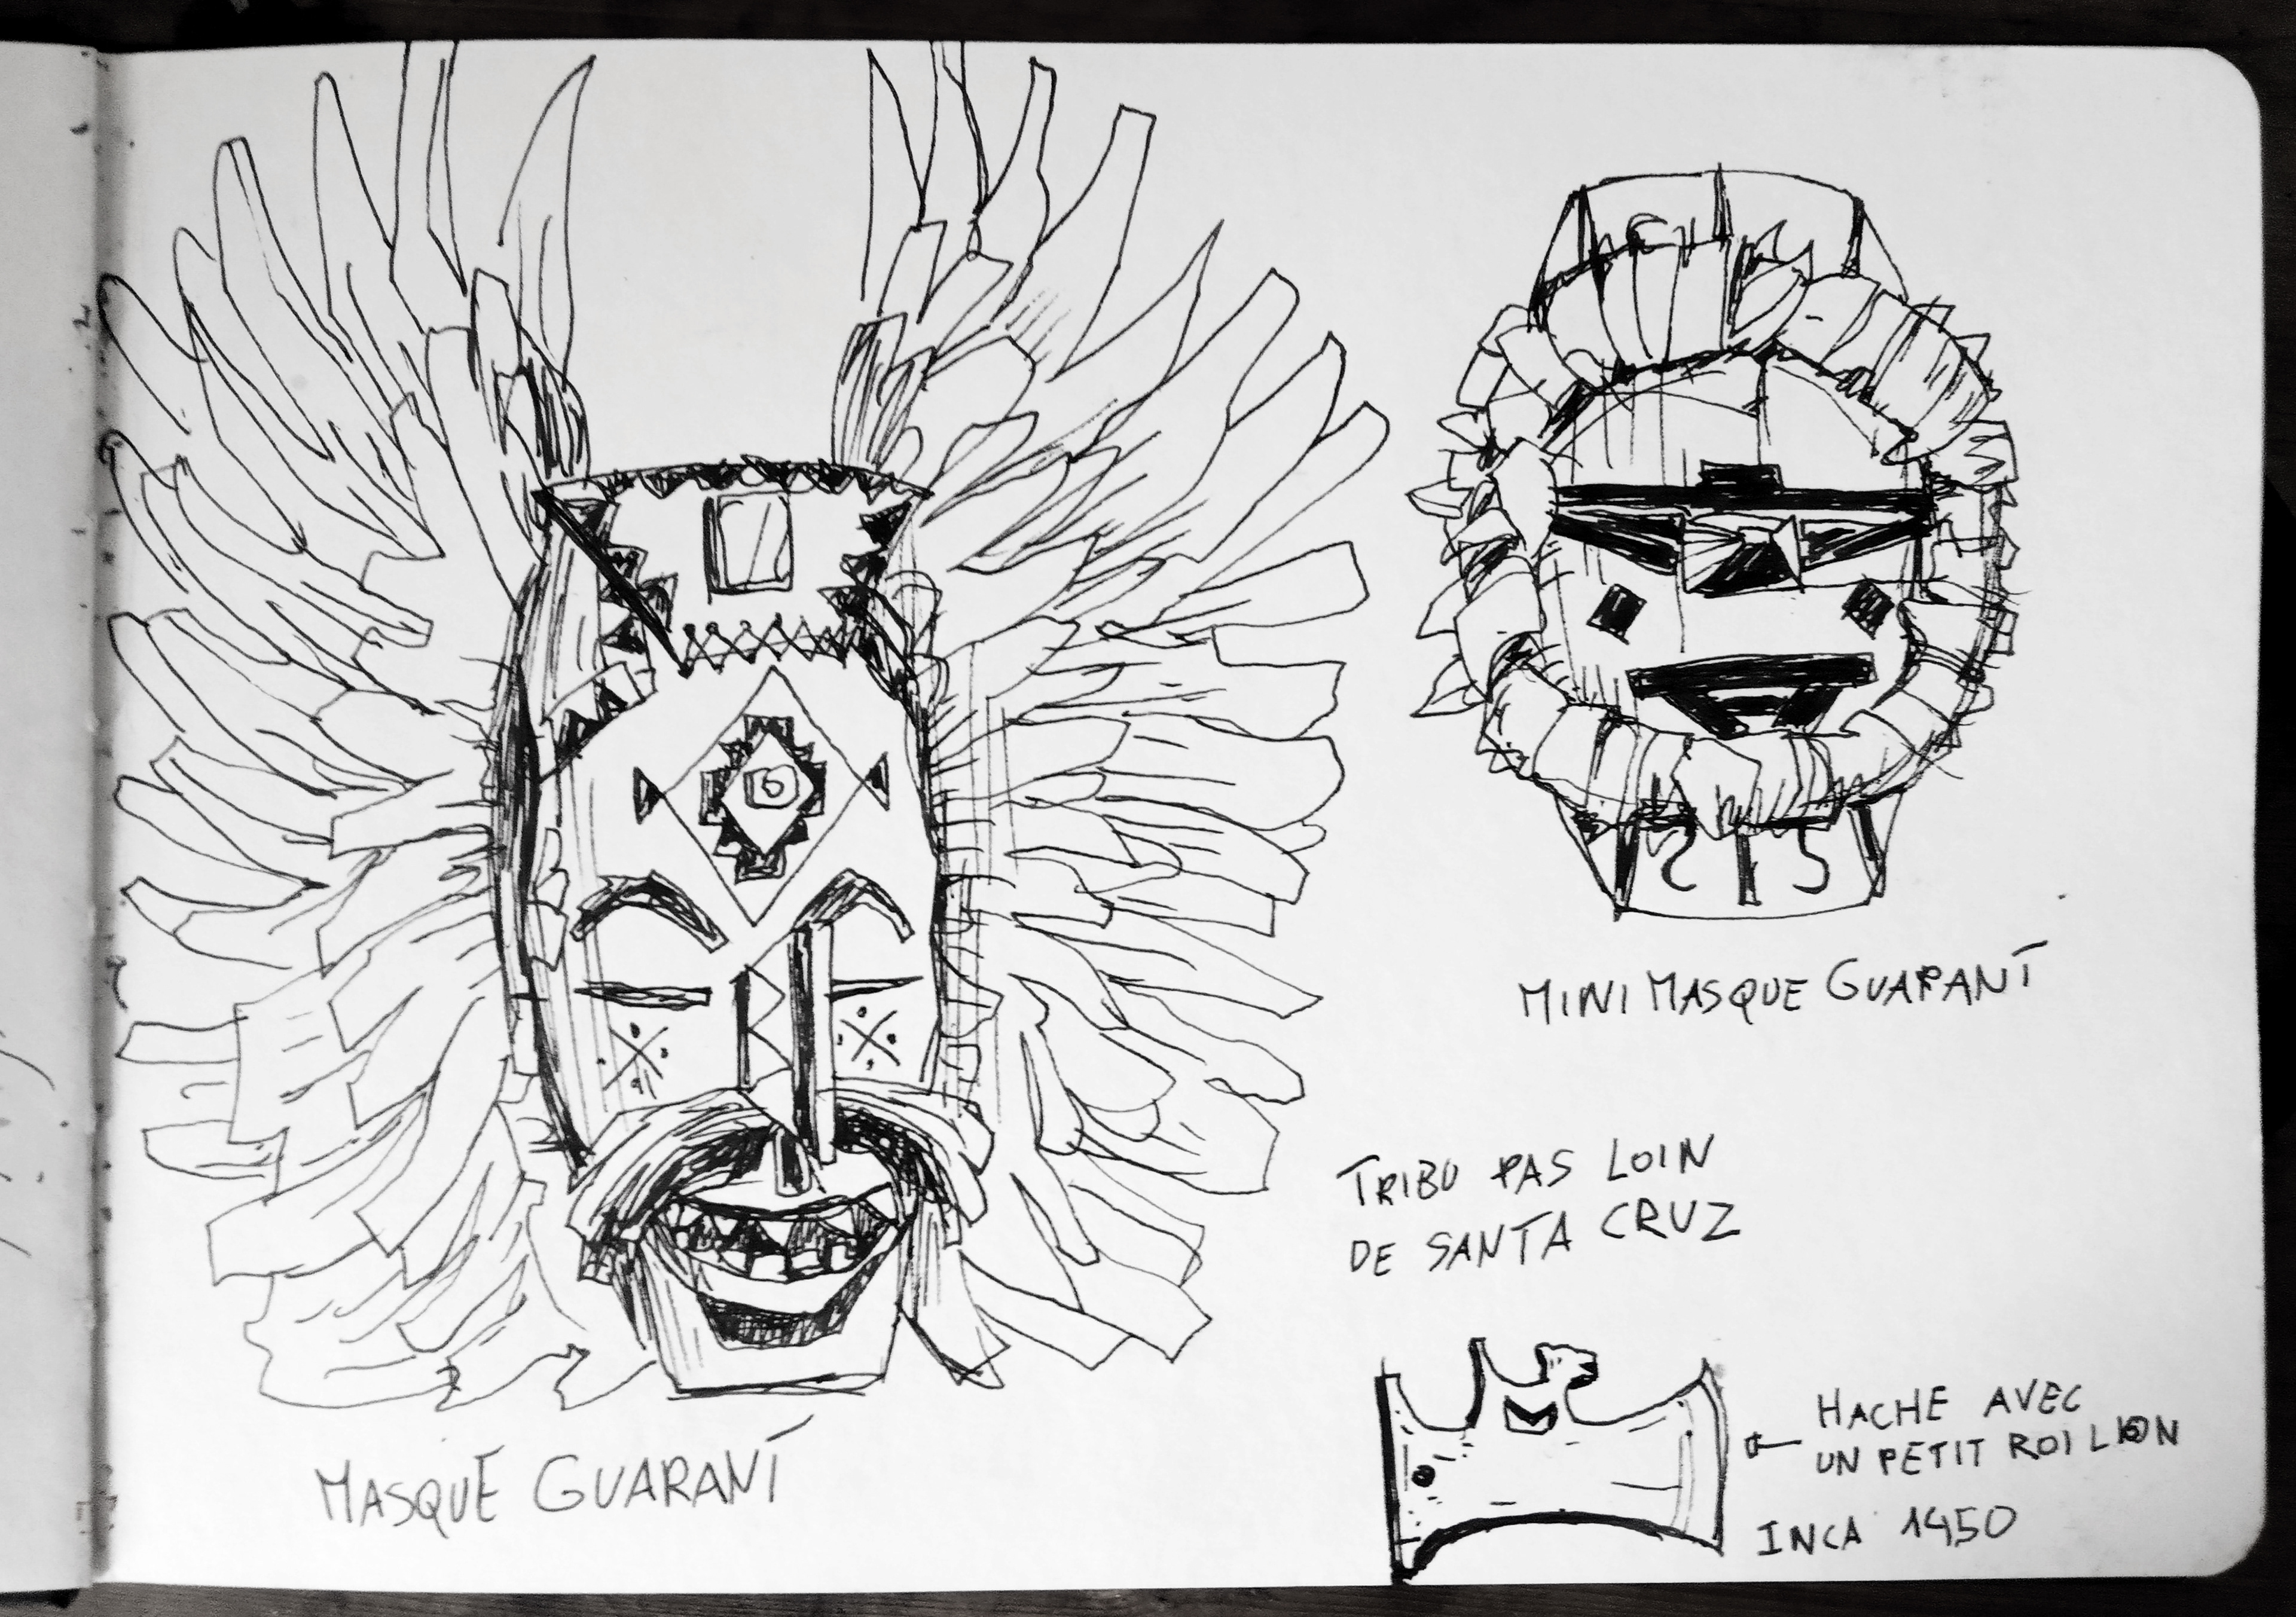 MINI MASQUE GUARANÍ
TRIBU PAS LOIN
DE SANTA CRUZ
HACHE AVEC
UN PETIT ROI LION
INCA 1450
MASQUE GUARANÍ